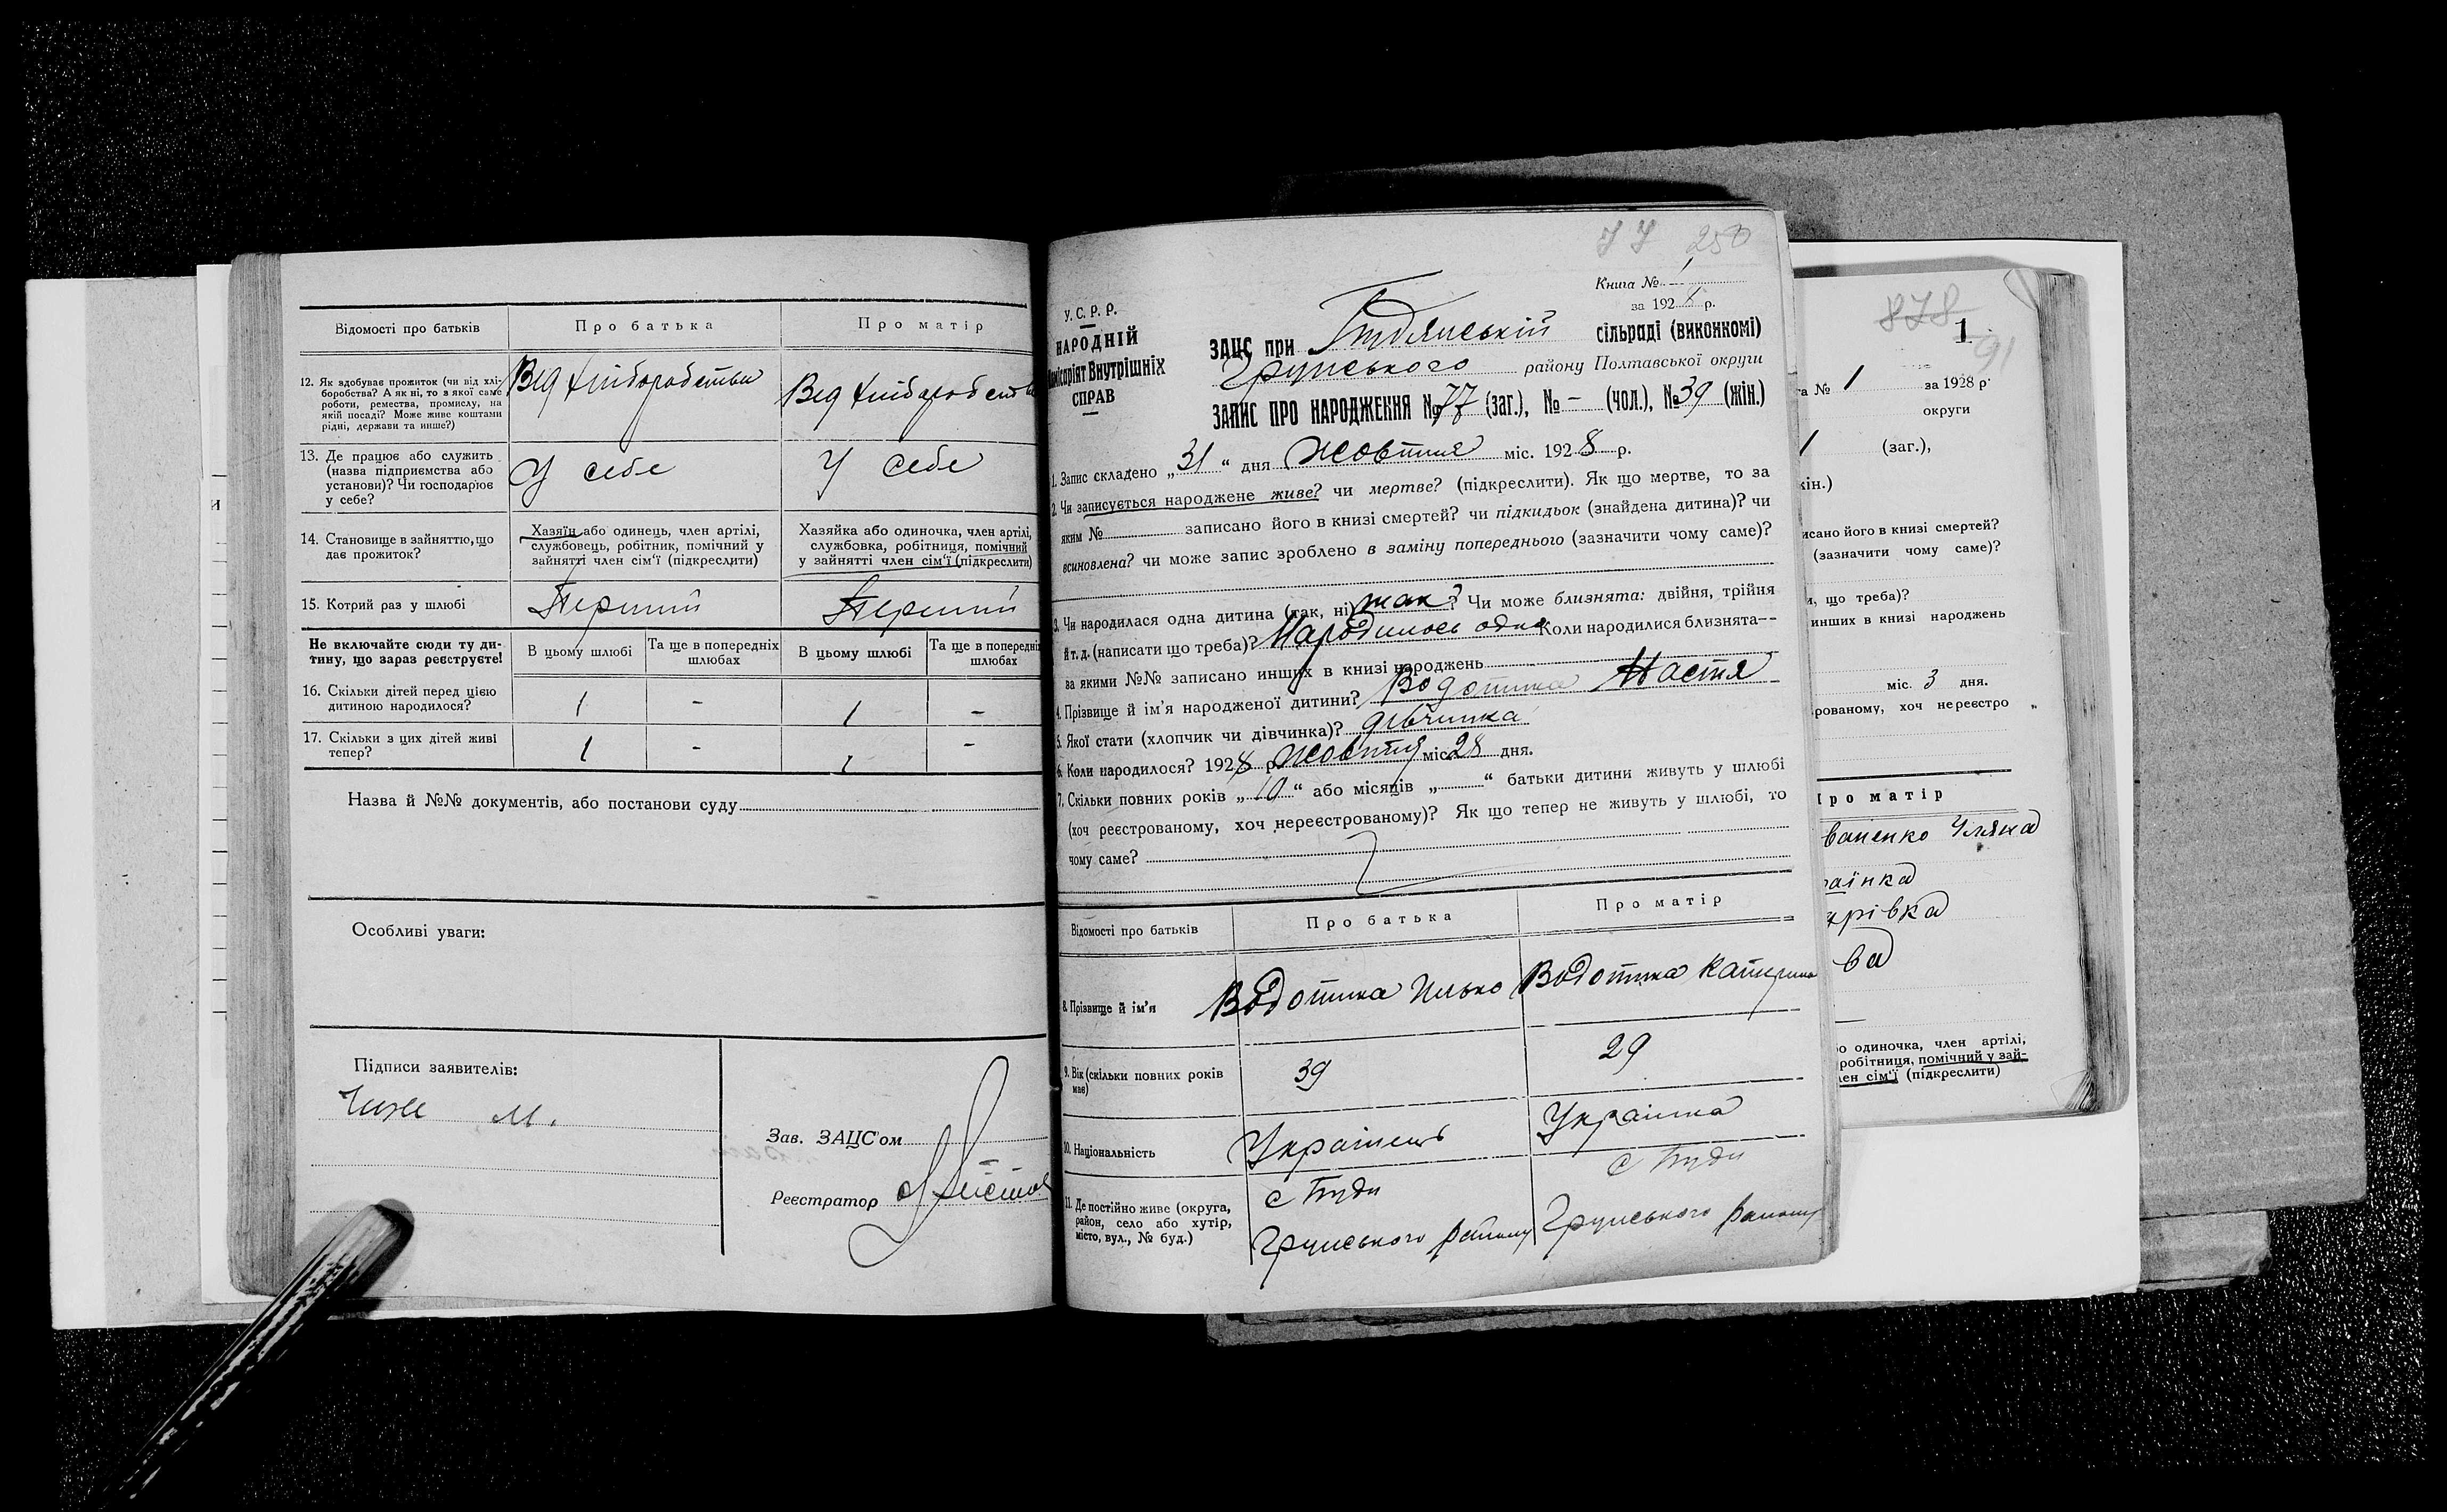 Відомості про батьків
Про батька
Про матір
12. Як здобуває прожиток (чи від хлі-
боробства? А як ні, то з якої саме
роботи, ремества, промислу, на
якій посаді? Може живе коштами
рідні, держави та инше?)
Від хліборобства
Від хліборобства
13. Де працює або служить
(назва підприємства або
установи)? Чи господарює
у себе?
У себе
У себе
14. Становище в зайняттю, що
дає прожиток?
Хазяїн або одинець, член артілі,
службовець, робітник, помічний у
зайнятті член сім'ї (підкреслити)
Хазяйка або одиночка, член артілі,
службовка, робітниця, помічний
у зайнятті член сім'ї (підкреслити)
15. Котрий раз у шлюбі
Перший
Перший
Не включайте сюди ту ди-
тину, що зараз реєструєте!
В цьому шлюбі
Та ще в попередніх
шлюбах
В цьому шлюбі
Та ще в попередніх
шлюбах
16. Скільки дітей перед цією
дитиною народилося?
1 - 1 -
17. Скільки з цих дітей живі
тепер?
1 - 1 -
Назва й №№ документів, або постанови суду
Особливі уваги:
Підписи заявителів:
М.
Зав. ЗАЦС'ом
Реєстратор
250
Книга № 1
за 1928 р.
У.С.Р.Р.
НАРОДНІЙ
Комісаріят Внутрішніх
СПРАВ
ЗАЦС при сільраді (виконкомі)
Грунського району Полтавської округи
ЗАПИС ПРО НАРОДЖЕННЯ № 77 (заг.), № - (чол.), № 39 (жін.)
1. Запис складено „31“ дня жовтня міс. 1928 р.
2. Чи записується народжене живе? чи мертве? (підкреслити). Як що мертве, то за
яким № записано його в книзі смертей? чи підкидьок (знайдена дитина)? чи
всиновлена? чи може запис зроблено в заміну попереднього (зазначити чому саме)?
3. Чи народилася одна дитина (так, ні) так? Чи може близнята: двійня, трійня
й т. д. (написати що треба)? Народилось одна Коли народилися близнята--
за якими №№ записано инших в книзі народжень
4. Прізвище й ім'я народженої дитини? Водотика Настя
5. Якої стати (хлопчик чи дівчинка)? дівчинка
6. Коли народилося? 1928 р. жовтня міс. 28 дня.
7. Скільки повних років „10“ або місяців „ “ батьки дитини живуть у шлюбі
(хоч реєстрованому, хоч нереєстрованому)? Як що тепер не живуть у шлюбі, то
чому саме?
Відомості про батьків
Про батька
Про матір
8. Прізвище й ім'я
Водотика Илько
Водотика Катерина
9. Вік (скільки повних років
має)
39
29
10. Національність
Українець
Українка
11. Де постійно живе (округа,
район, село або хутір,
місто, вул., № буд.)
с Буди
Грунського району
с Буди
Грунського району
878
1
91
а № 1 за 1928 р.
округи
1 (заг.),
жін.)
исано його в книзі смертей?
(зазначити чому саме)?
и, що треба)?
инших в книзі народжень
міс. 3 дня.
рованому, хоч нереєстро
Про матір
ваненко Уляна
раїнка
арівка
ва
о одиночка, член артілі,
робітниця, помічний у зай-
лен сім'ї (підкреслити)